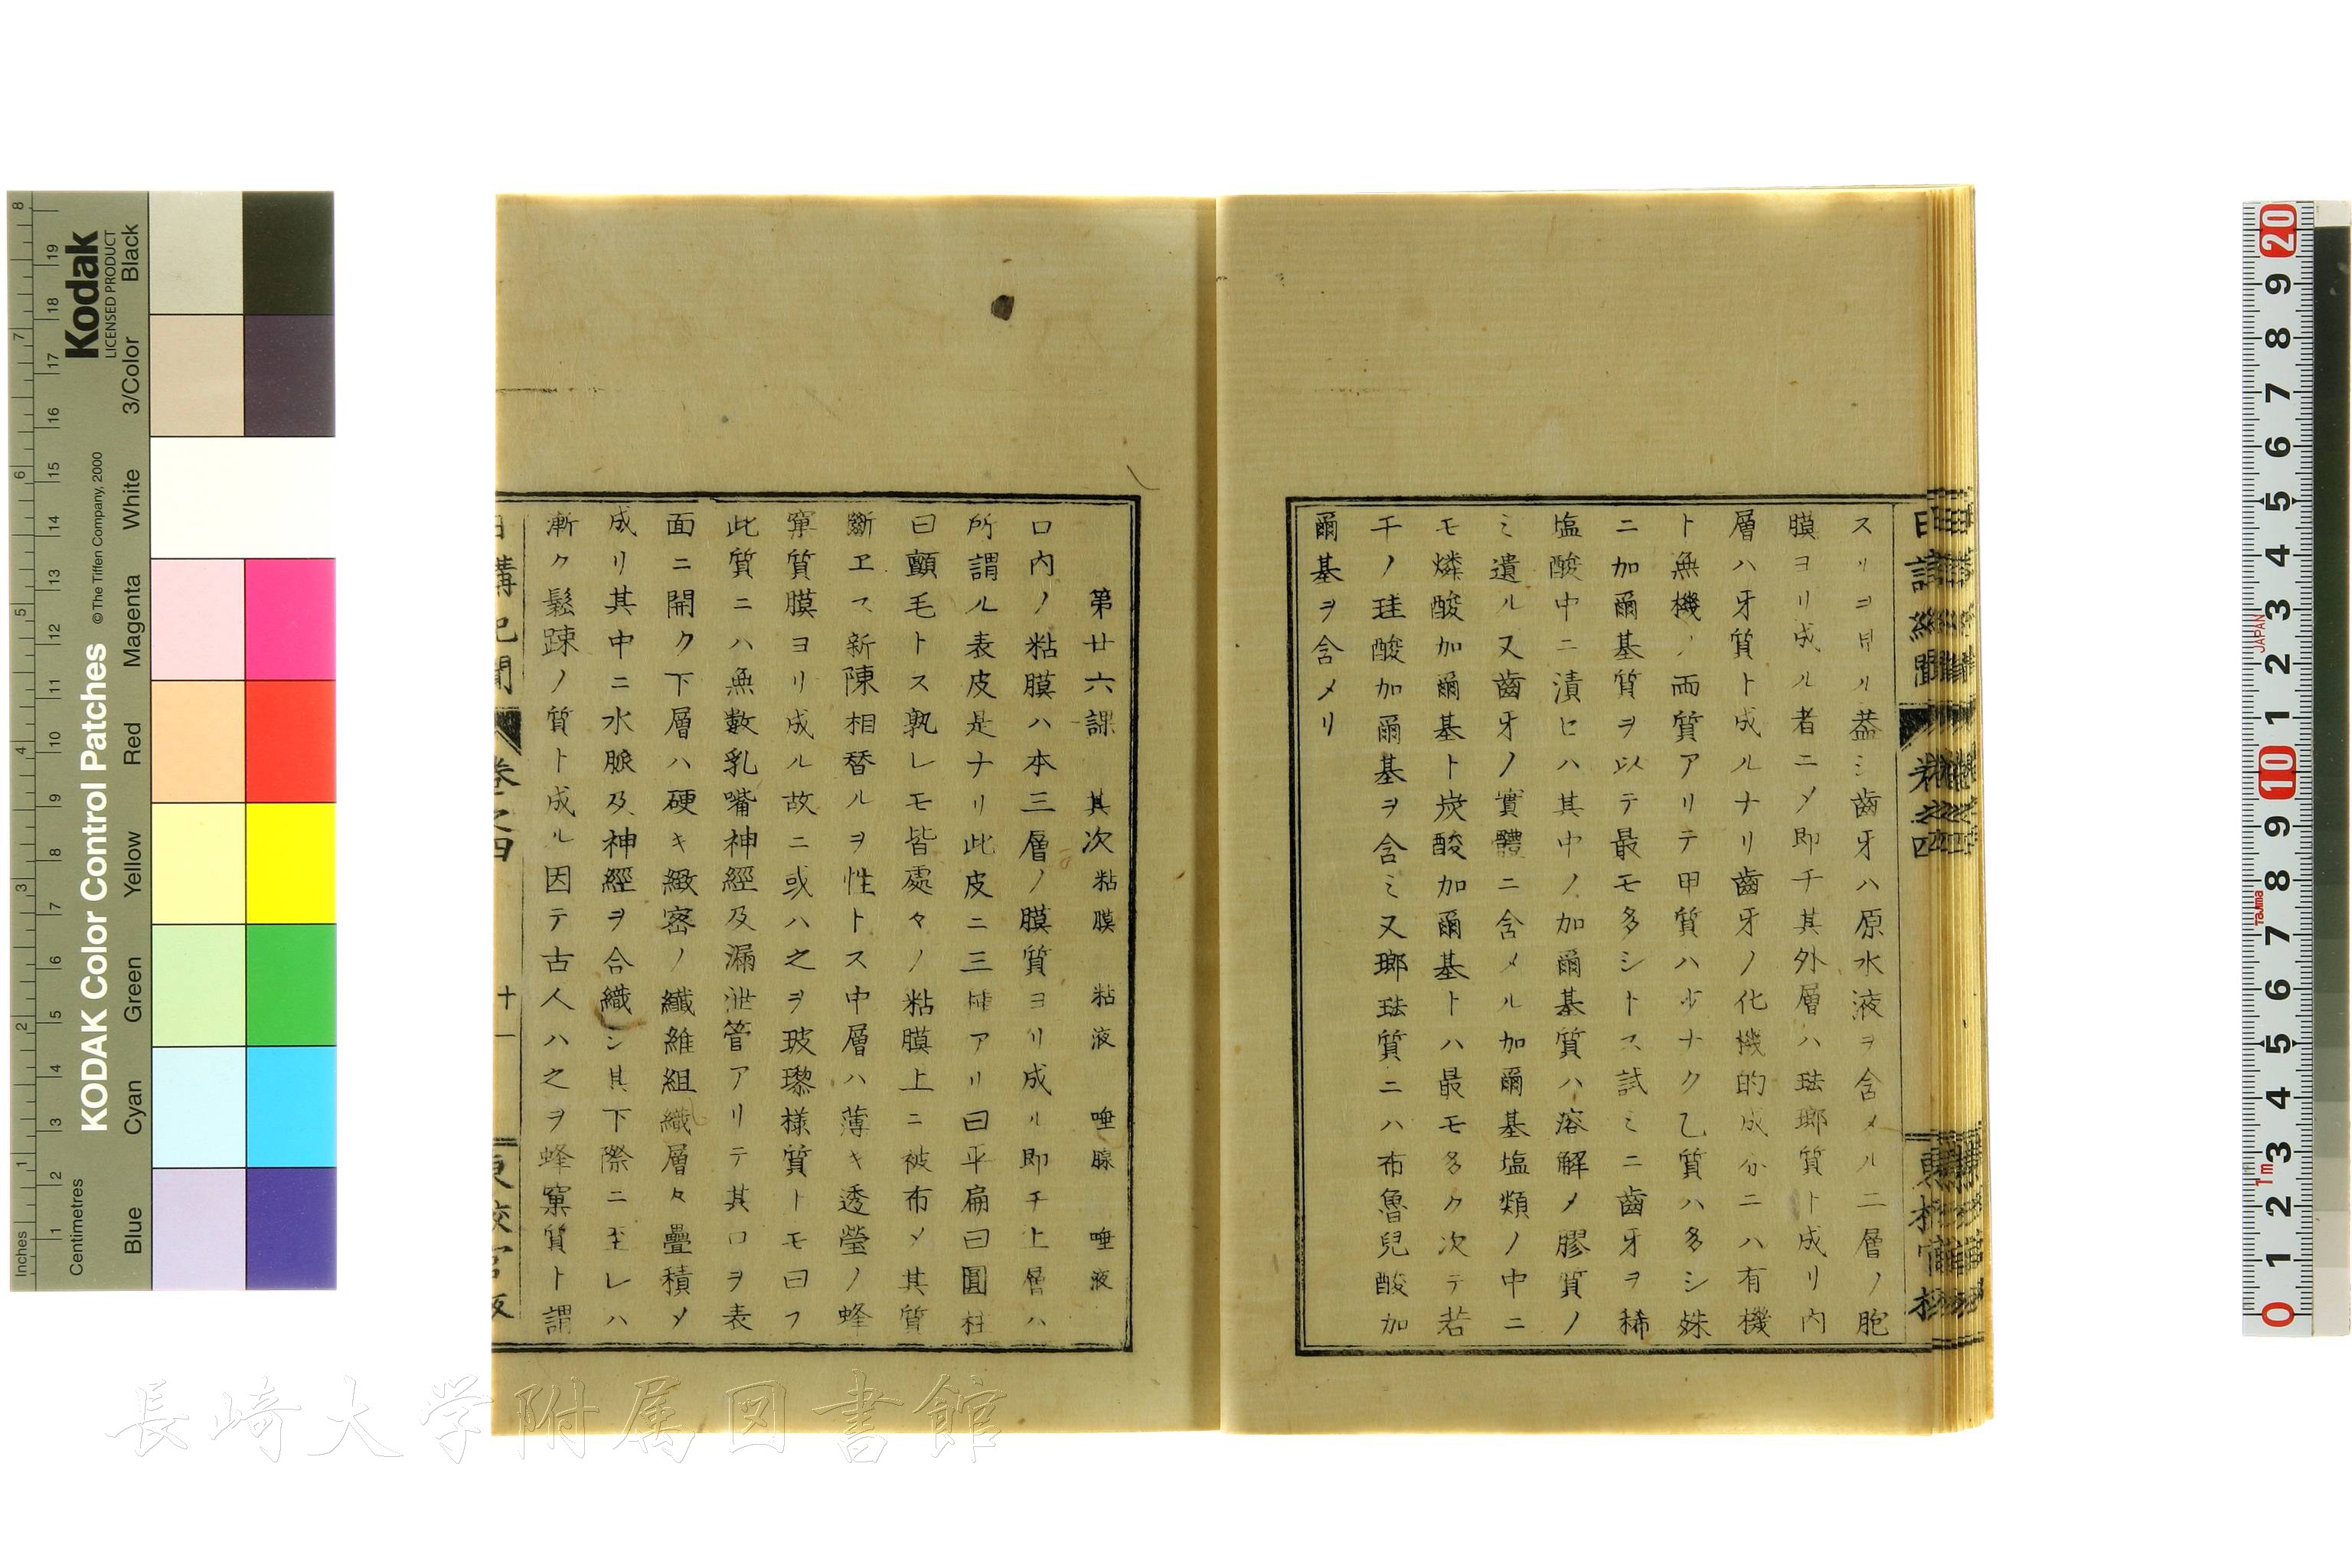 スリヨ甘ル葢シ齒牙ハ原水液ヲ含メル二層ノ胞
膜ヨリ成ル者ニメ即チ其外層ハ琺瑯質ト成リ内
層ハ牙質ト成ルナリ齒牙ノ化機的成分ニハ有機
ト無機ノ兩質アリテ甲質ハ少ナク乙質ハ多シ殊
ニ加爾基質ヲ以テ最モ多シトス試ミニ齒牙ヲ稀
塩酸中ニ漬ヒハ其中ノ加爾基質ハ溶解メ膠質ノ
ミ遺ル又齒牙ノ實體ニ含メル加爾基塩類ノ中ニ
モ燐酸加爾基ト炭酸加爾基トハ最モ多ク次テ若
干ノ珪酸加爾基ヲ含ミ又瑯琺質ニハ布魯兒酸加
爾基ヲ含メリ
日講紀聞 卷之四
第廿六課 其次 粘膜 粘液 唾腺 唾液
口内ノ粘膜ハ本三層ノ膜質ヨリ成ル即チ上層ハ
所謂ル表皮是ナリ此皮ニ三種アリ曰平扁曰圓柱
曰顫毛トス孰レモ皆處々ノ粘膜上ニ被布メ其質
斷エス新陳相替ルヲ性トス中層ハ薄キ透瑩ノ蜂
窠質膜ヨリ成ル故ニ或ハ之ヲ玻瓈様質トモ曰フ
此質ニハ無數乳嘴神經及漏泄管アリテ其口ヲ表
面ニ開ク下層ハ硬キ緻密ノ纎維組織層々疊積メ
成リ其中ニ水脈及神經ヲ合織シ其下際ニ至レハ
漸ク鬆踈ノ質ト成ル因テ古人ハ之ヲ蜂窠質ト謂
日講記聞 卷之四 十一
長崎大学附属図書館
Kodak
LICENSED PRODUCT
KODAK Color Control Patches
© The Tiffen Company, 2000
Inches
Centimetres
Blue Cyan Green Yellow Red Magenta White 3/Color Black
JAPAN
Tajima
1m